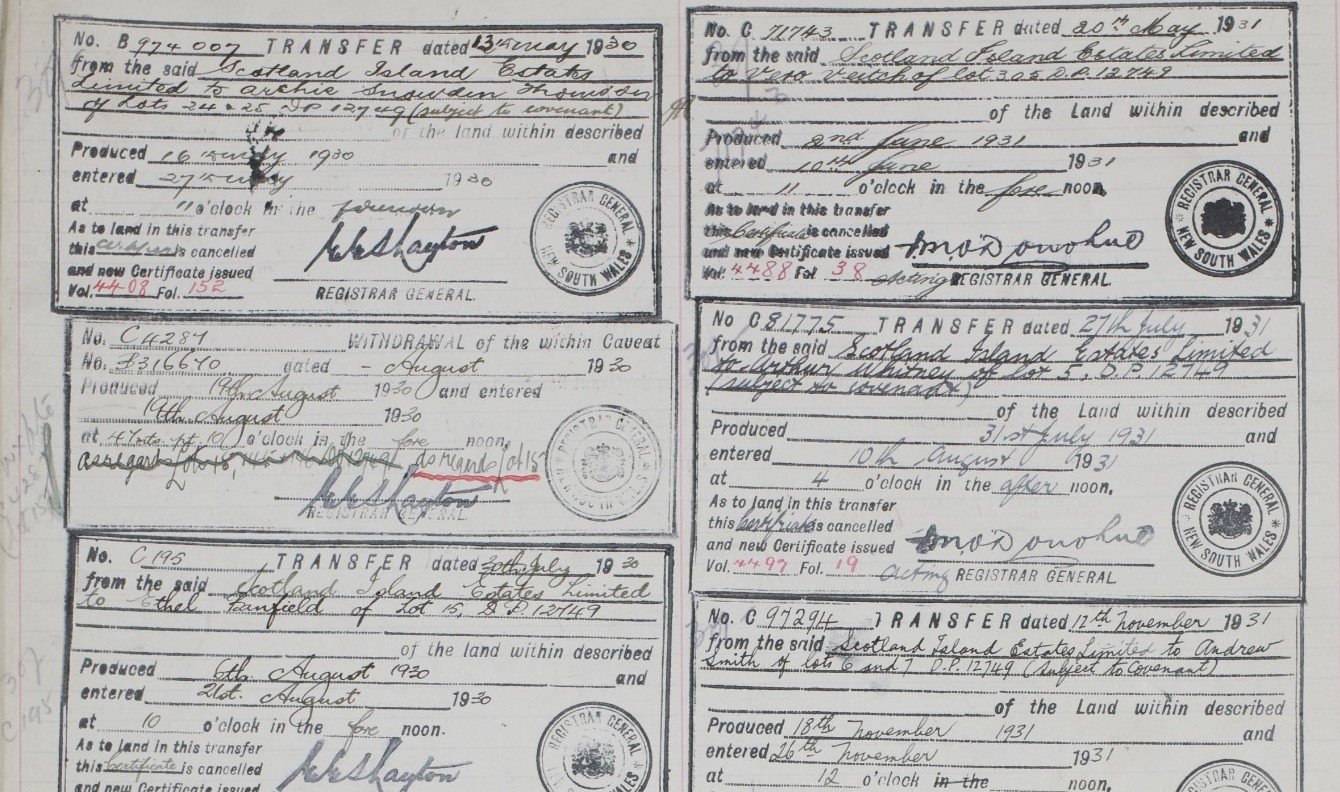 No. B 974 007 TRANSFER dated 13th May 1930
from the said Scotland Island Estates
Limited to Archie Snowden Thomson
of Lots 24 & 25 D.P. 12749 (subject to covenant)
of the land within described
Produced 16th May 1930 and
entered 27th May 1930
at 11 o'clock in the forenoon
As to land in this transfer
this certificate is cancelled
and new Certificate issued
Vol. 4408 Fol. 152
REGISTRAR GENERAL.
REGISTRAR GENERAL
NEW SOUTH WALES
No. C4287 WITHDRAWAL of the within Caveat
No. B316670 dated - August 1930
Produced 19th August 1930 and entered
19th August 1930
at 47 mts. pt. 10 o'clock in the fore noon,
as regards lot 15
REGISTRAR GENERAL.
No. C 195 TRANSFER dated 30th July 1930
from the said Scotland Island Estates Limited
to Ethel Panfield of Lot 15, D.P. 12749
of the land within described
Produced 6th August 1930 and
entered 21st. August 1930
at 10 o'clock in the fore noon.
As to land in this transfer
this Certificate is cancelled
and new Certificate issued
C 195
No. C 71743 TRANSFER dated 20th May 1931
from the said Scotland Island Estates Limited
to Vero Veitch of lot 305 D.P. 12749
of the Land within described
Produced 2nd June 1931 and
entered 10th June 1931
at 11 o'clock in the fore noon,
As to land in this transfer
this Certificate is cancelled
and new Certificate issued
Vol. 4488 Fol. 38
Acting REGISTRAR GENERAL.
REGISTRAR GENERAL
NEW SOUTH WALES
No C81775 TRANSFER dated 27th July 1931
from the said Scotland Island Estates Limited
to Arthur Whitney of lot 5, D.P. 12749
(subject to covenant)
of the Land within described
Produced 31st July 1931 and
entered 10th August 1931
at 4 o'clock in the after noon,
As to land in this transfer
this Certificate is cancelled
and new Certificate issued
Vol. 4497 Fol. 19
Acting REGISTRAR GENERAL
REGISTRAR GENERAL
NEW SOUTH WALES
No. C 97294 TRANSFER dated 12th November 1931
from the said Scotland Island Estates Limited to Andrew
Smith of lots 6 and 7 D.P. 12749 (Subject to Covenant)
of the Land within described
Produced 18th November 1931 and
entered 26th November 1931
at 12 o'clock in the noon,
REGISTRAR GENERAL